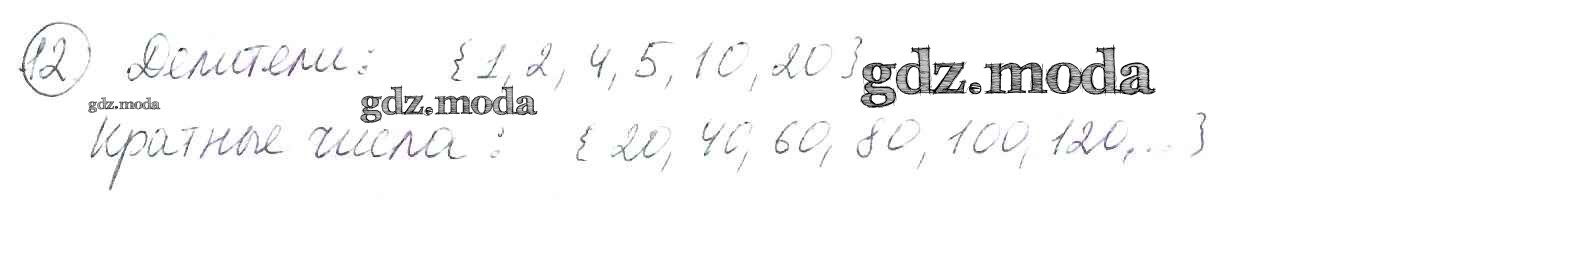 12 Делители: {1, 2, 4, 5, 10, 20}
gdz.moda
gdz.moda
gdz.moda
Кратные числа: {20, 40, 60, 80, 100, 120, ...}